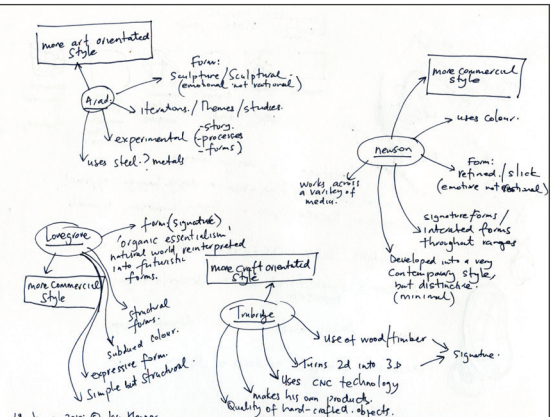 more art orientated
style
Arad.
Form:
sculpture/Sculptural.
(emotional not rational)
Iterations./Themes/studies.
experimental
(-story.
-processes
-forms)
uses steel.? metals
more commercial
style
newson
uses colour.
Form:
refined./slick
(emotive not rational)
works across
a variety of
media.
signature forms/
interated forms
throughout ranges
Developed into a very
contempoary style,
but distinctive.
(minimal)
Lovegrove
form (signature)
'organic essentialism,'
natural world reinterpreted
into futuristic
forms.
more commercial
style
structural
forms.
subdued colour.
expressive form.
Simple but structural.
more craft orientated
style
Trubridge
Use of wood/timber
Signature.
Turns 2d into 3D
Uses CNC technology
makes his own products.
Quality of hand-crafted objects.